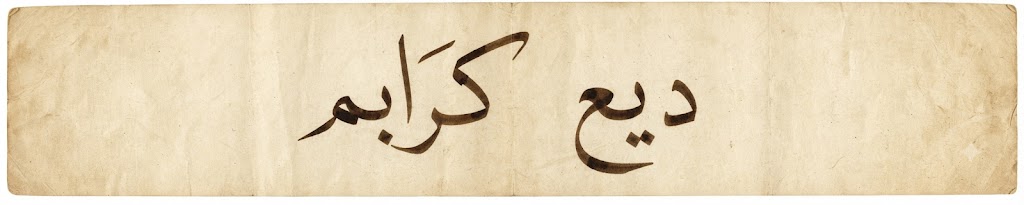 ديع كرَابم